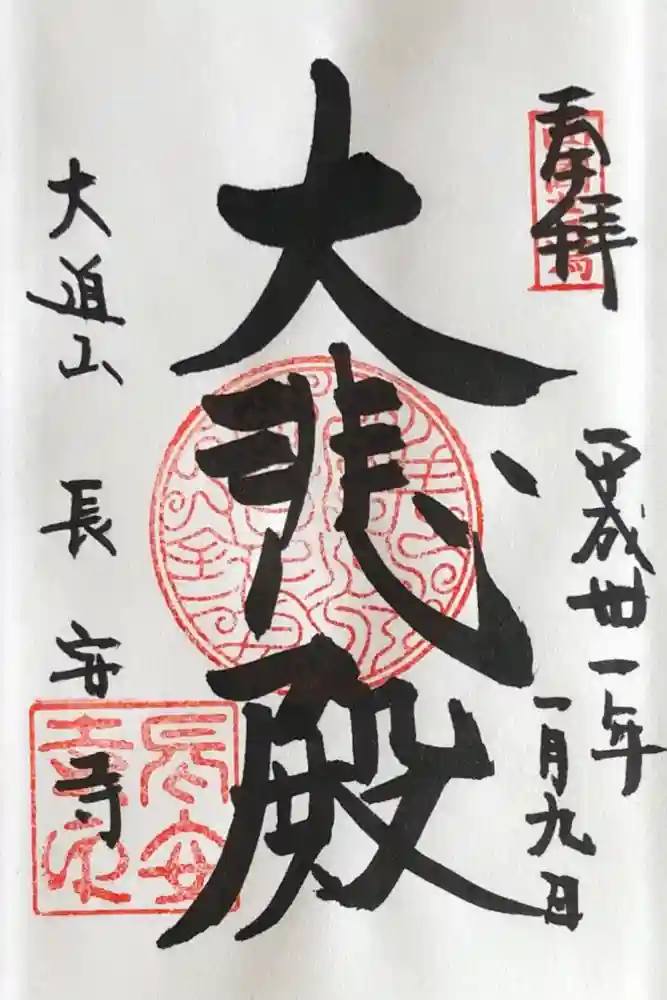 奉拝
平成丗一年
一月九日
大悲殿
大道山 長安寺
長安
寺印